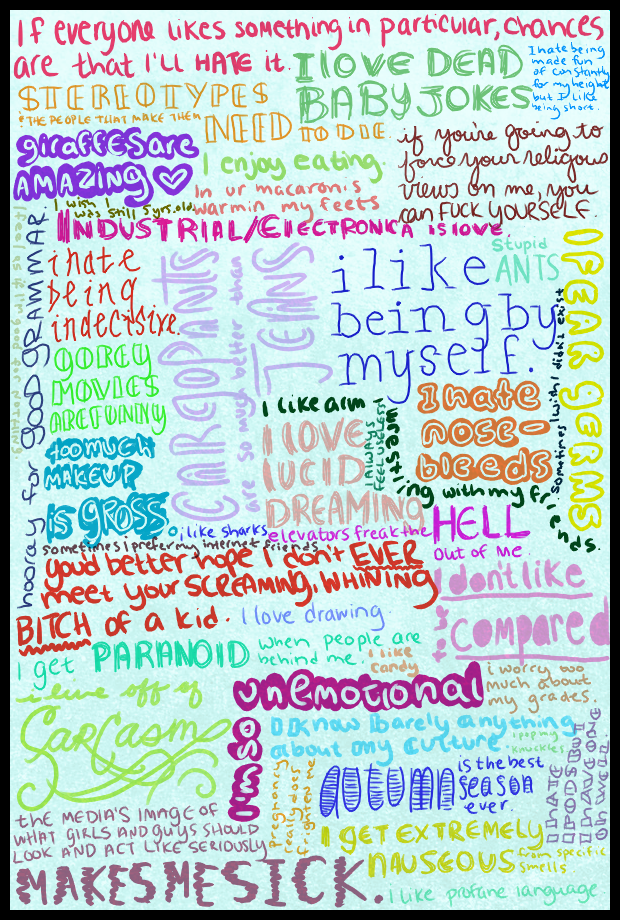 If everyone likes something in particular, chances
are that I'll HATE it.
I LOVE DEAD
BABY JOKES
I hate being
made fun
of constantly
for my height
but I like
being short.
STEREOTYPES
& THE PEOPLE THAT MAKE THEM
NEED TO DIE
giraffes are
AMAZING
I enjoy eating.
if you're going to
force your religous
views on me, you
can FUCK YOURSELF.
In ur macaronis
warmin my feets
I wish I
was still 5 yrs. old.
INDUSTRIAL/ElECTRONICA is love.
hooray for good GRAMMAR
i feel as if i'm good for NOTHING.
i hate
being
indecisive.
CARGO PANTS
are so much better than
JEANS
i like
being by
myself.
Stupid
ANTS
I FEAR GERMS
sometimes i wish i didn't exist
GOREY
MOVIES
ARE FUNNY
I like arm
wrestling with my friends.
I LOVE
LUCID
DREAMING
I ALWAYS
FEEL USELESS!
I hate
nose-
bleeds
too much
MAKEUP
is GROSS
i like sharks
elevators freak the
HELL
out of me
sometimes i prefer my internet friends
you'd better hope I don't EVER
meet your SCREAMING, WHINING
BITCH of a kid.
I love drawing.
I don't like
to be
compared
I get PARANOID
when people are
behind me.
I like
candy
i worry too
much about
my grades.
i live off of
SARCASM
I'm so
unemotional
I KNOW barely anything
about my culture.
I pop my
knuckles
I HATE
IPODS BUT
I HAVE ONE
Pregnancy
really does
frighten me
AUTUMN
is the best
season
ever.
the MEDIA'S IMAGE OF
WHAT GIRLS AND GUYS SHOULD
LOOK AND ACT LIKE SERIOUSLY
MAKES ME SICK.
I GET EXTREMELY
NAUSEOUS
from specific
smells
I like profane language